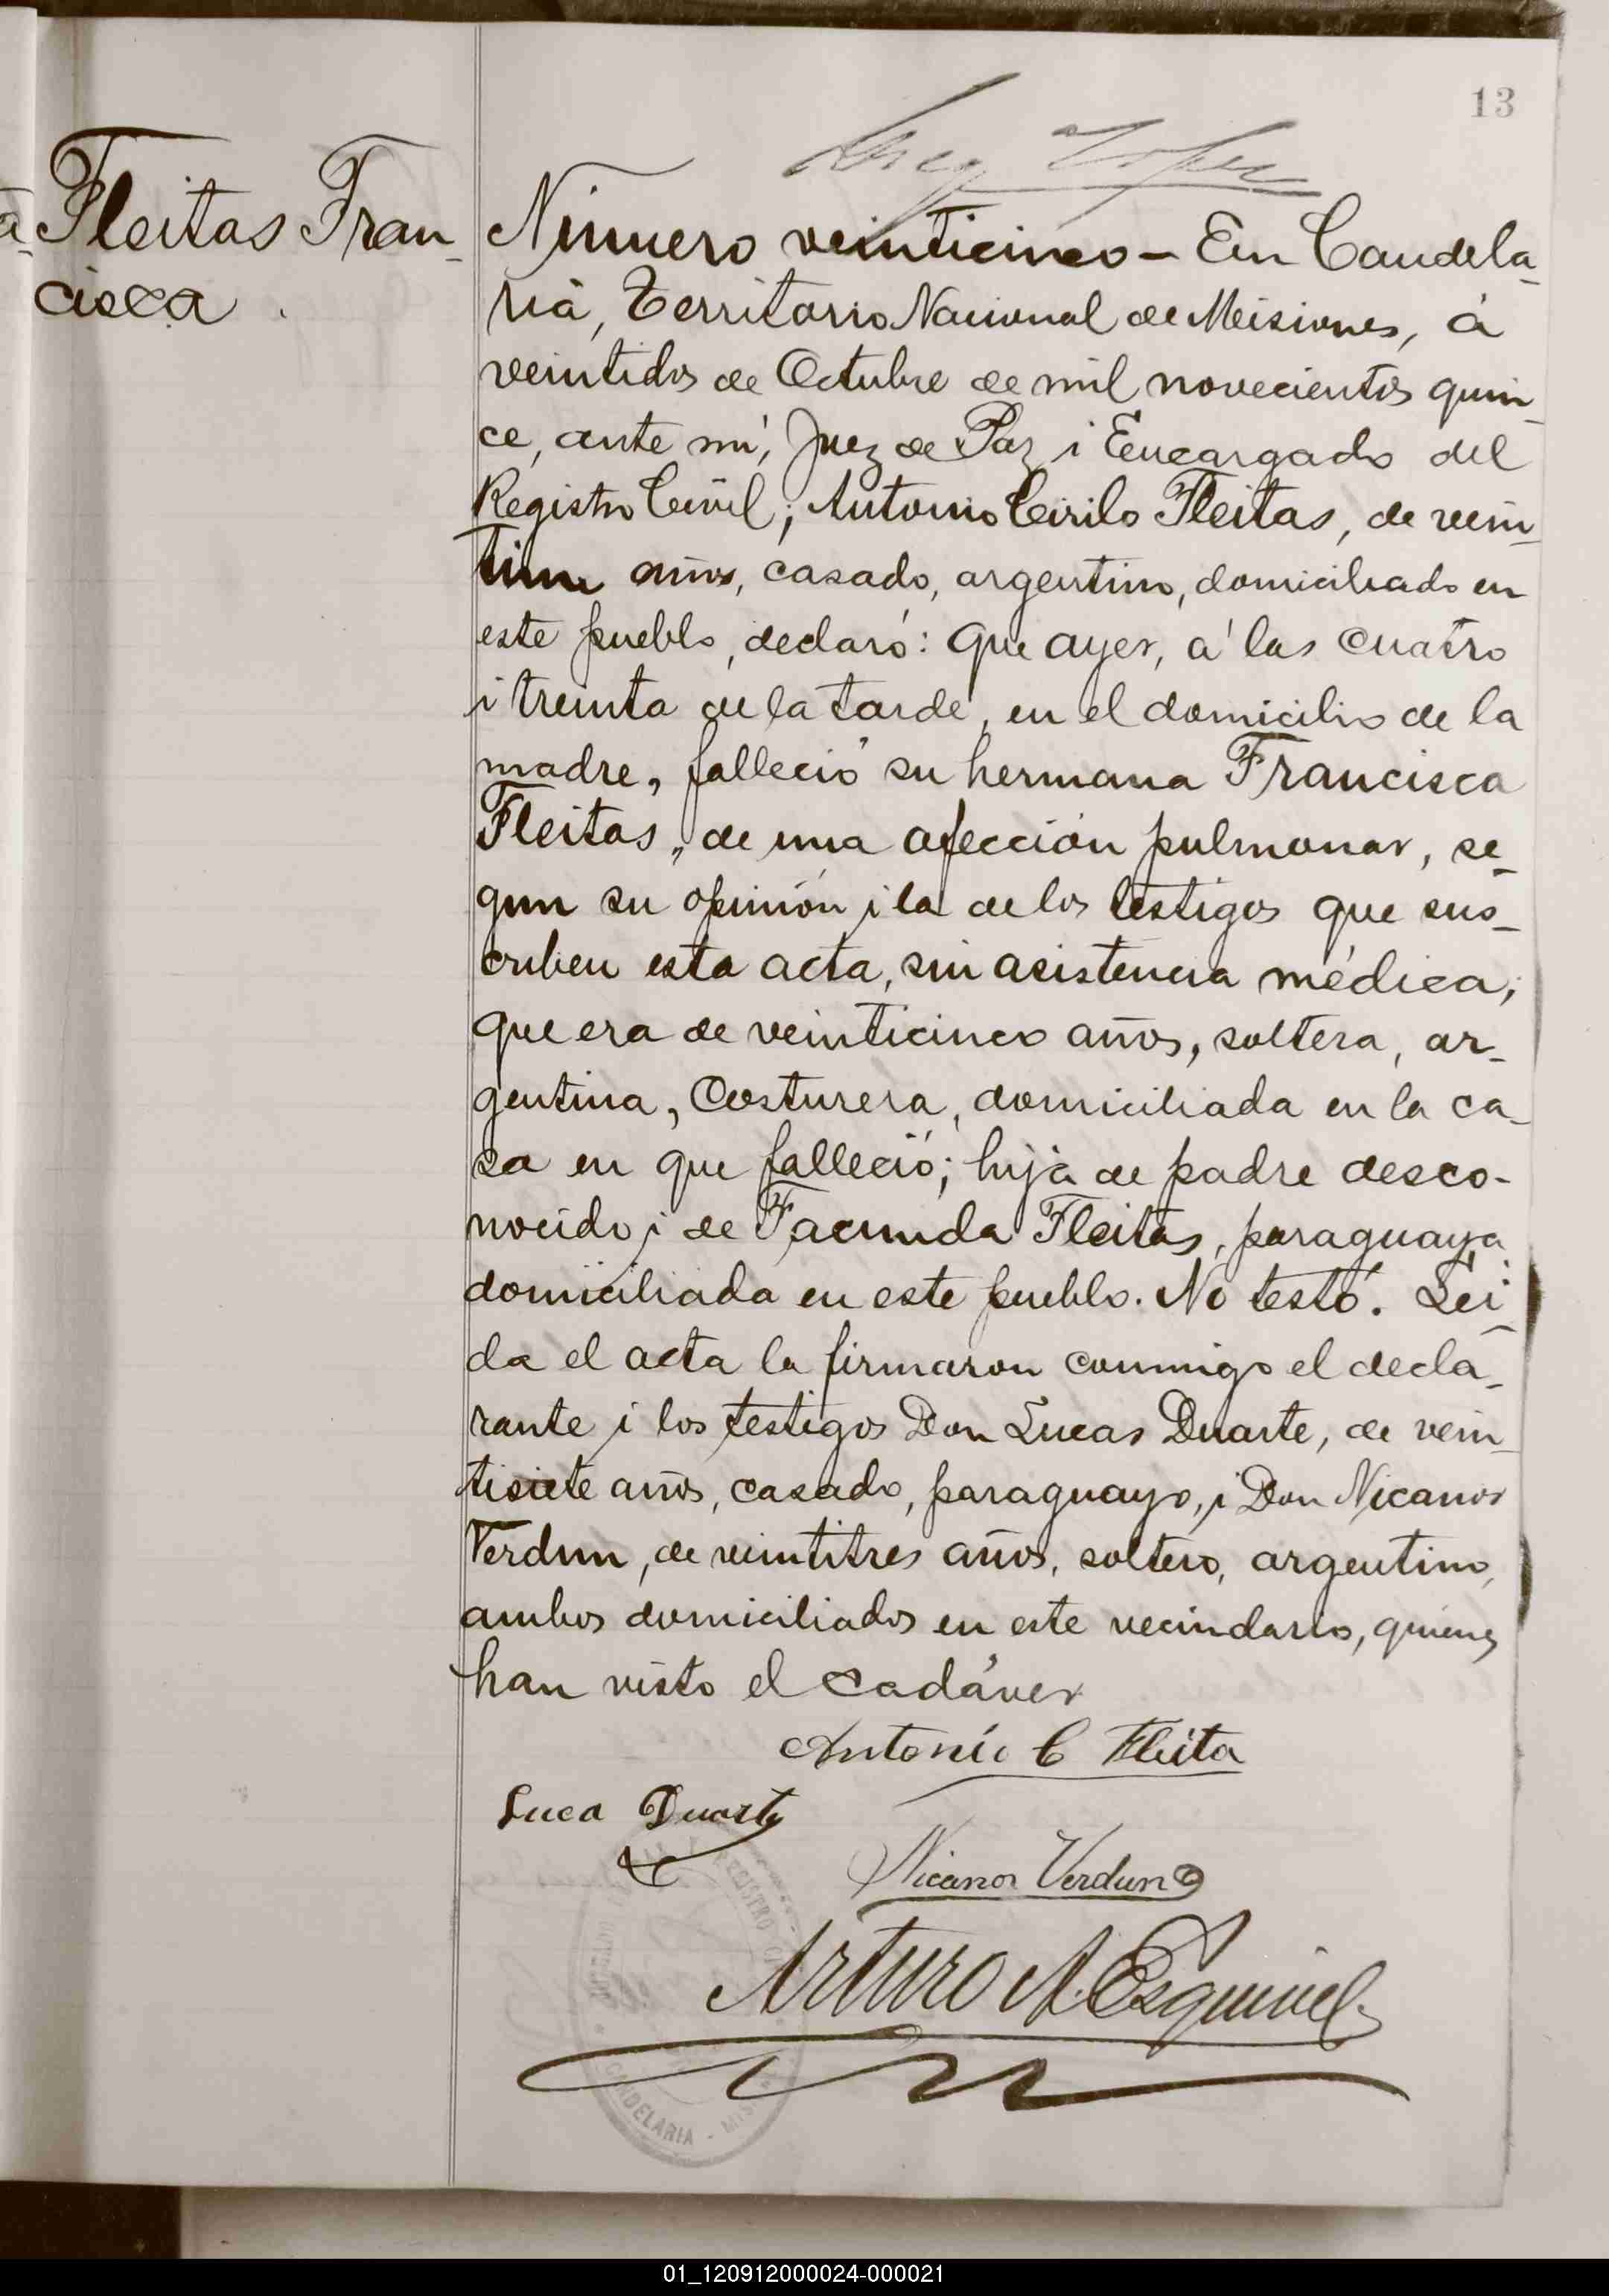 13
Fleitas Fran-
cisca.
Número veinticinco - En Candela-
ria, Territorio Nacional de Misiones, á
veintidos de Octubre de mil novecientos quin-
ce, ante mí, Juez de Paz i Encargado del
Registro Civil; Antonio Cirilo Fleitas, de vein-
tiun años, casado, argentino, domiciliado en
este pueblo, declaró: Que ayer, á las cuatro
i treinta de la tarde, en el domicilio de la
madre, falleció su hermana Francisca
Fleitas, de una afección pulmonar, se-
gun su opinión i la de los testigos que sus-
criben esta acta, sin asistencia médica;
que era de veinticinco años, soltera, ar-
gentina, Costurera, domiciliada en la ca-
sa en que falleció; hija de padre desco-
nocido i de Facunda Fleitas, paraguaya
domiciliada en este pueblo. No testó. Lei-
da el acta la firmaron conmigo el decla-
rante i los testigos Don Lucas Duarte, de vein-
tisiete años, casado, paraguayo, i Don Nicanor
Verdun, de veintitres años, soltero, argentino,
ambos domiciliados en este vecindario, quienes
han visto el cadáver
Antonio C Fleita
Luca Duarte
Nicanor Verdun
Arturo A. Esquivel
REGISTRO
CANDELARIA - MIS
01_120912000024-000021